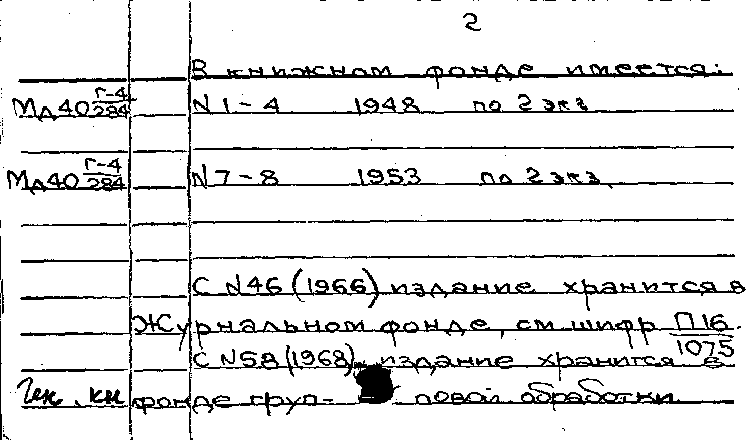 2
В книжном фонде имеется:
Мд40 Г-4/284 N 1-4 1948 по 2 экз
Мд40 Г-4/284 N 7-8 1953 по 2 экз.
С N46 (1966) издание хранится в
Журнальном фонде, см шифр П16/1075
С N58 (1968) издание хранится в
фонде груп- повой обработки